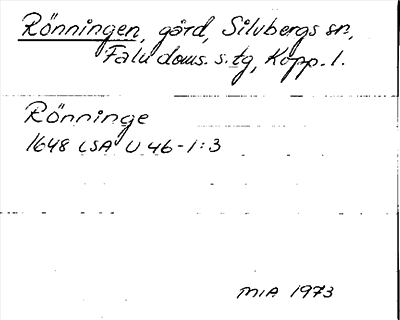 Rönningen, gård, Silvbergs sn,
Falu doms. s. tg, Kopp. l.
Rönninge
1648 LSA U 46-1:3
MIA 1973